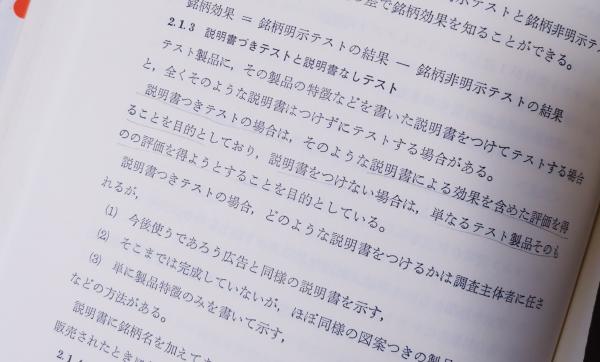 示テストと銘柄非明示テス
差で銘柄効果を知ることができる。
銘柄効果 = 銘柄明示テストの結果 − 銘柄非明示テストの結果
2.1.3 説明書づきテストと説明書なしテスト
テスト製品に，その製品の特徴などを書いた説明書をつけてテストする場合
と，全くそのような説明書はつけずにテストする場合がある。
説明書つきテストの場合は，そのような説明書による効果を含めた評価を得
ることを目的としており，説明書をつけない場合は，単なるテスト製品そのも
のの評価を得ようとすることを目的としている。
説明書つきテストの場合，どのような説明書をつけるかは調査主体者に任さ
れるが，
(1) 今後使うであろう広告と同様の説明書を示す，
(2) そこまでは完成していないが，ほぼ同様の図案つきの製品
(3) 単に製品特徴のみを書いて示す，
などの方法がある。
説明書に銘柄名を加えて
販売されたとき
2.1.4